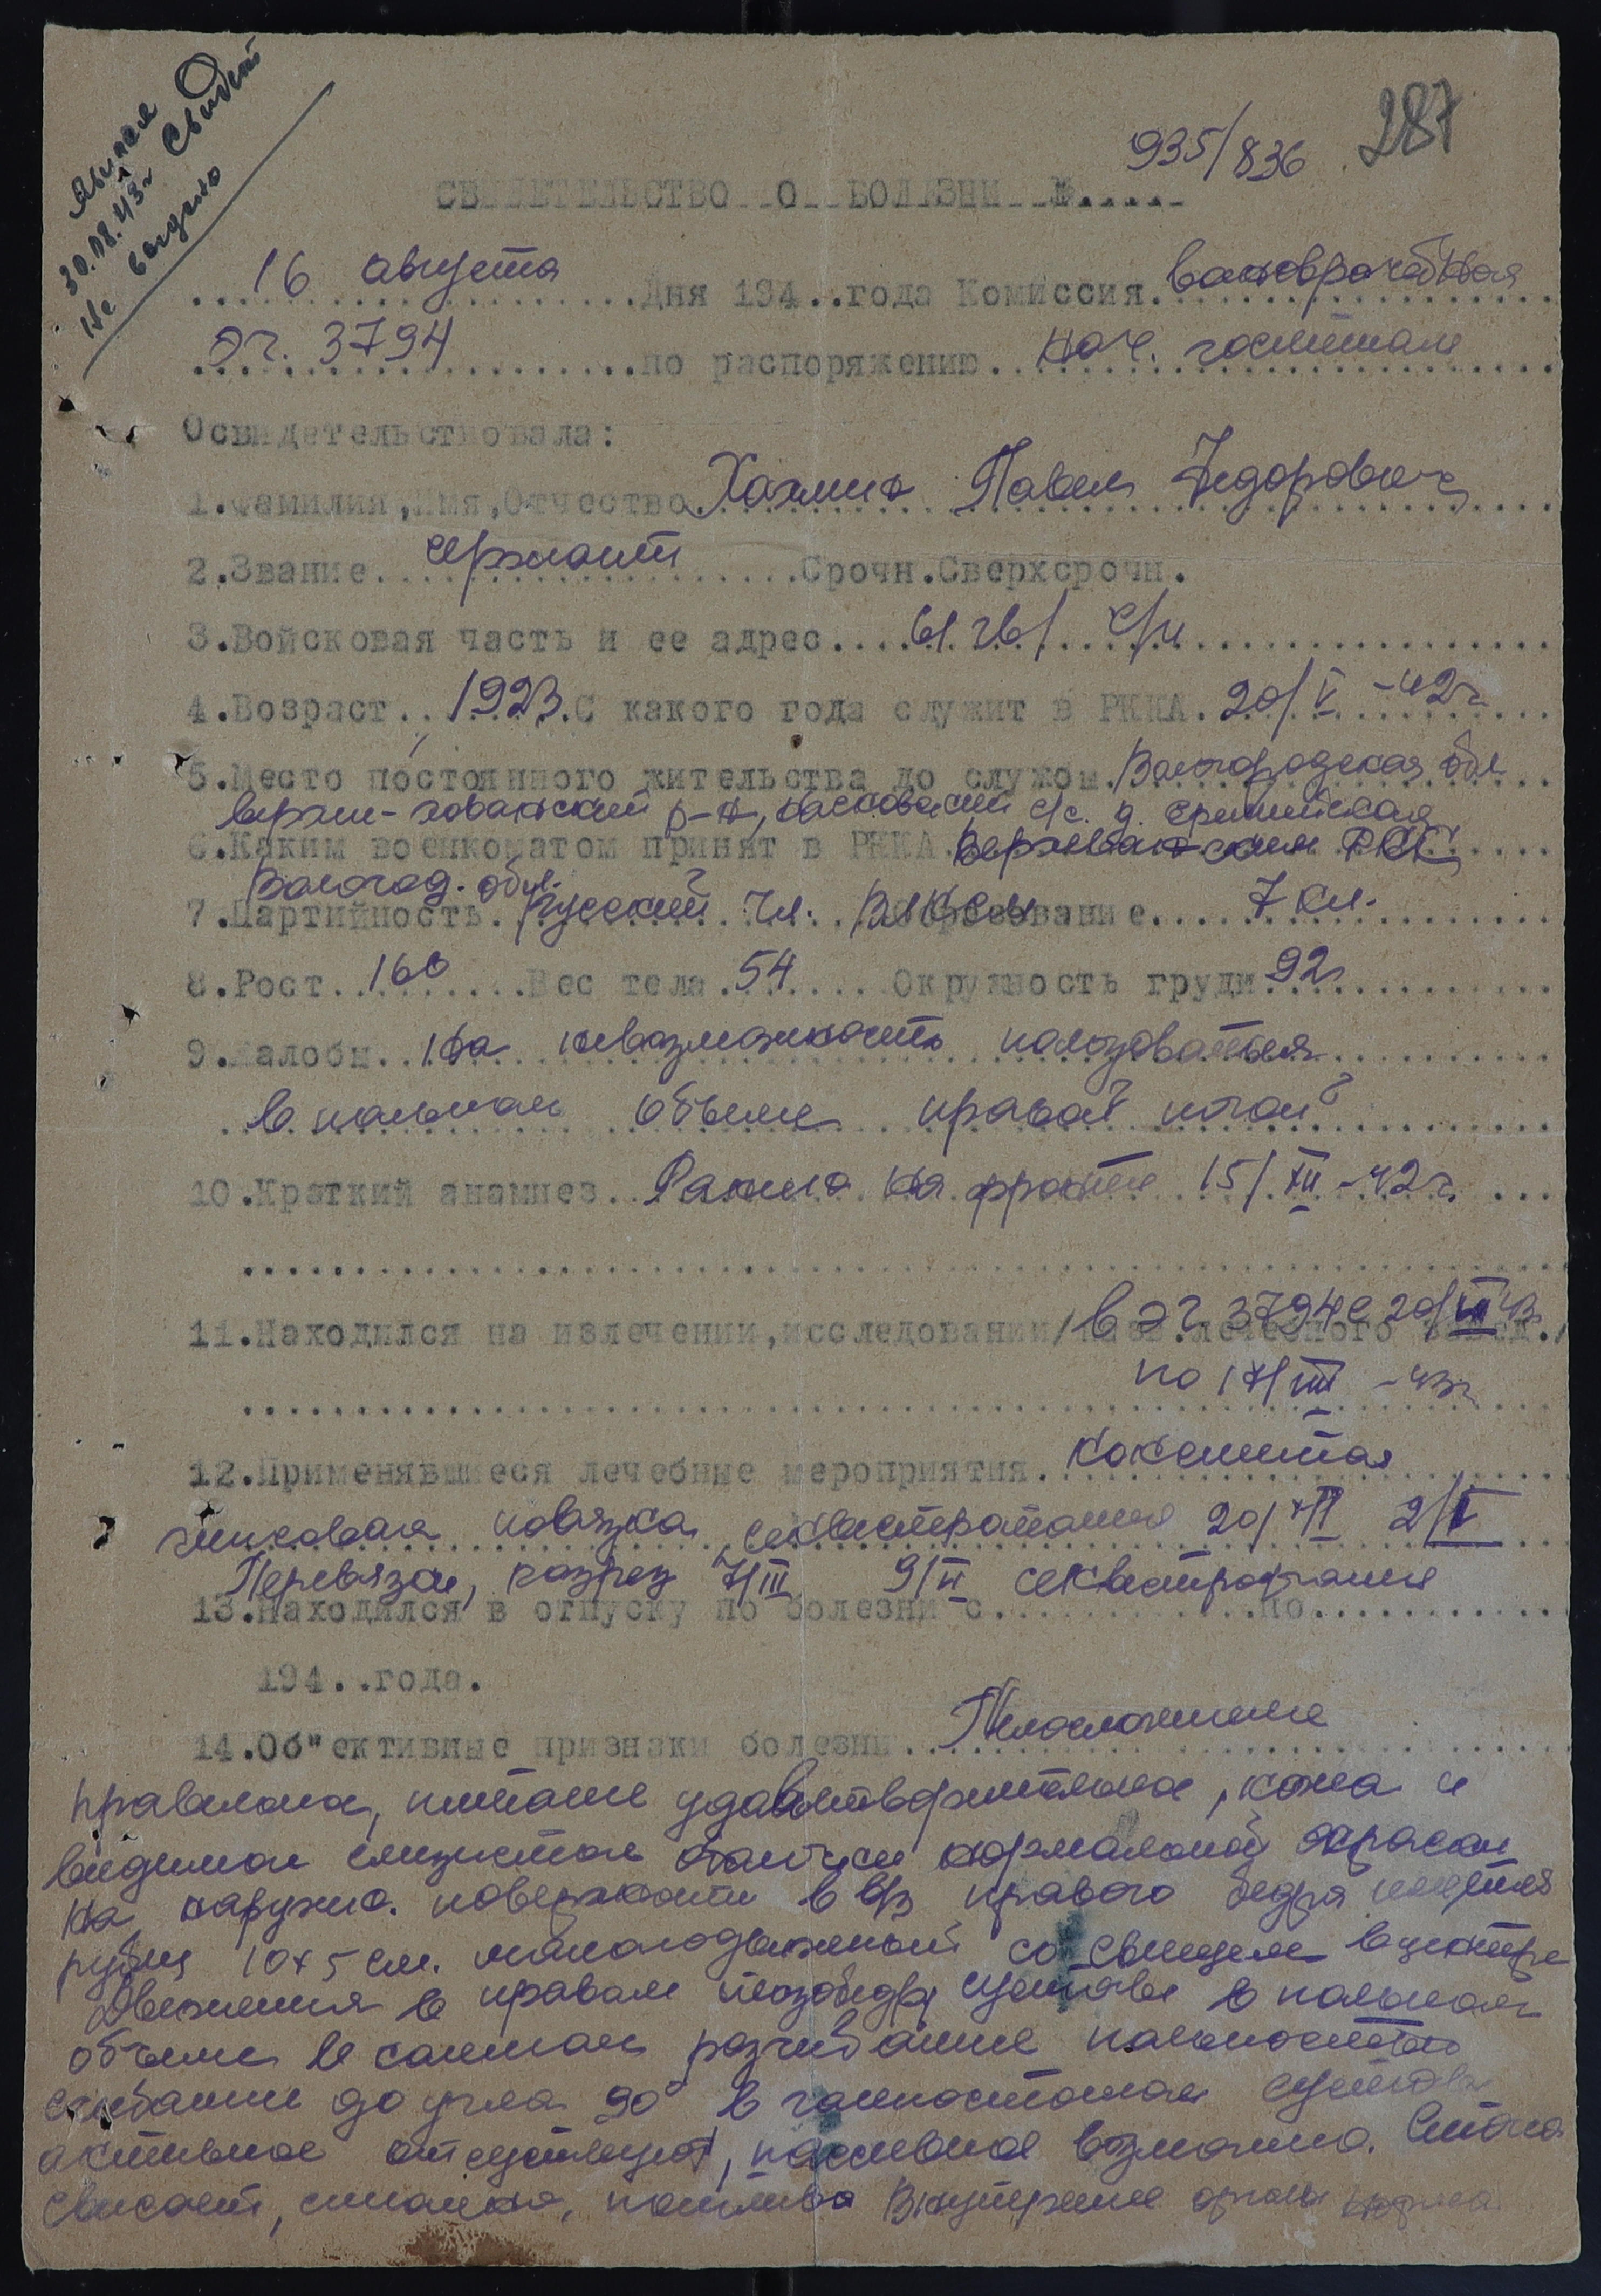 Явился
30.08.43 г Свидет
Не выдано
287
935/836
СВИДЕТЕЛЬСТВО О БОЛЕЗНИ №.....
16 августа дня 194..года Комиссия военврачебная
ЭГ. 3794 по распоряжению нач. госпиталя
Освидетельствовала:
1.Фамилия,Имя,Отчество Павел Федорович
2.Звание сержант Срочн.Сверхсрочн.
3.Войсковая часть и ее адрес 61 гв/ с/п
4.Возраст 1923.С какого года служит в РККА. 20/V -42г
5.Место постоянного жительства до службы. Вологодская обл
р-н, с/с. д.
6.Каким военкоматом принят в РККА РВК
Вологод. обл.
7.Партийность. Русский чл. ВЛКСМ Образование 7 кл.
8.Рост 160 Вес тела 54 Окружность груди 92
9.Жалобы на невозможность пользоваться
в полном объеме правой ногой
10.Краткий анамнез. Ранен на фронте 15/XII -42г.
11.Находился на излечении,исследовании/назв.лечебного завед./ в ЭГ 3794 с 20/ 43
по 17/VIII -43г
12.Применявшиеся лечебные мероприятия. кокситная
гипсовая повязка, 20/ 2/V
Перевязки, разрез 7/III 9/VI секвестротомия
13.Находился в отпуску по болезни с по
194..года.
14.Об"ективные признаки болезни Телосложение
правильное, питание удовлетворительное, кожа и
видимые слизистые оболочки нормальной окраски
На наружно. поверхности в в/з правого бедра имеется
рубец 10х5 см. малоподвижный со свищем в центре
Движения в правом тазобедр суставе в полном
объеме в разгибание полностью
сгибание до угла 90° в голеностопном суставе
активное отсутствует, пассивное возможно. Стопа
свисает, синюшна, потлива Внутренние органы норма